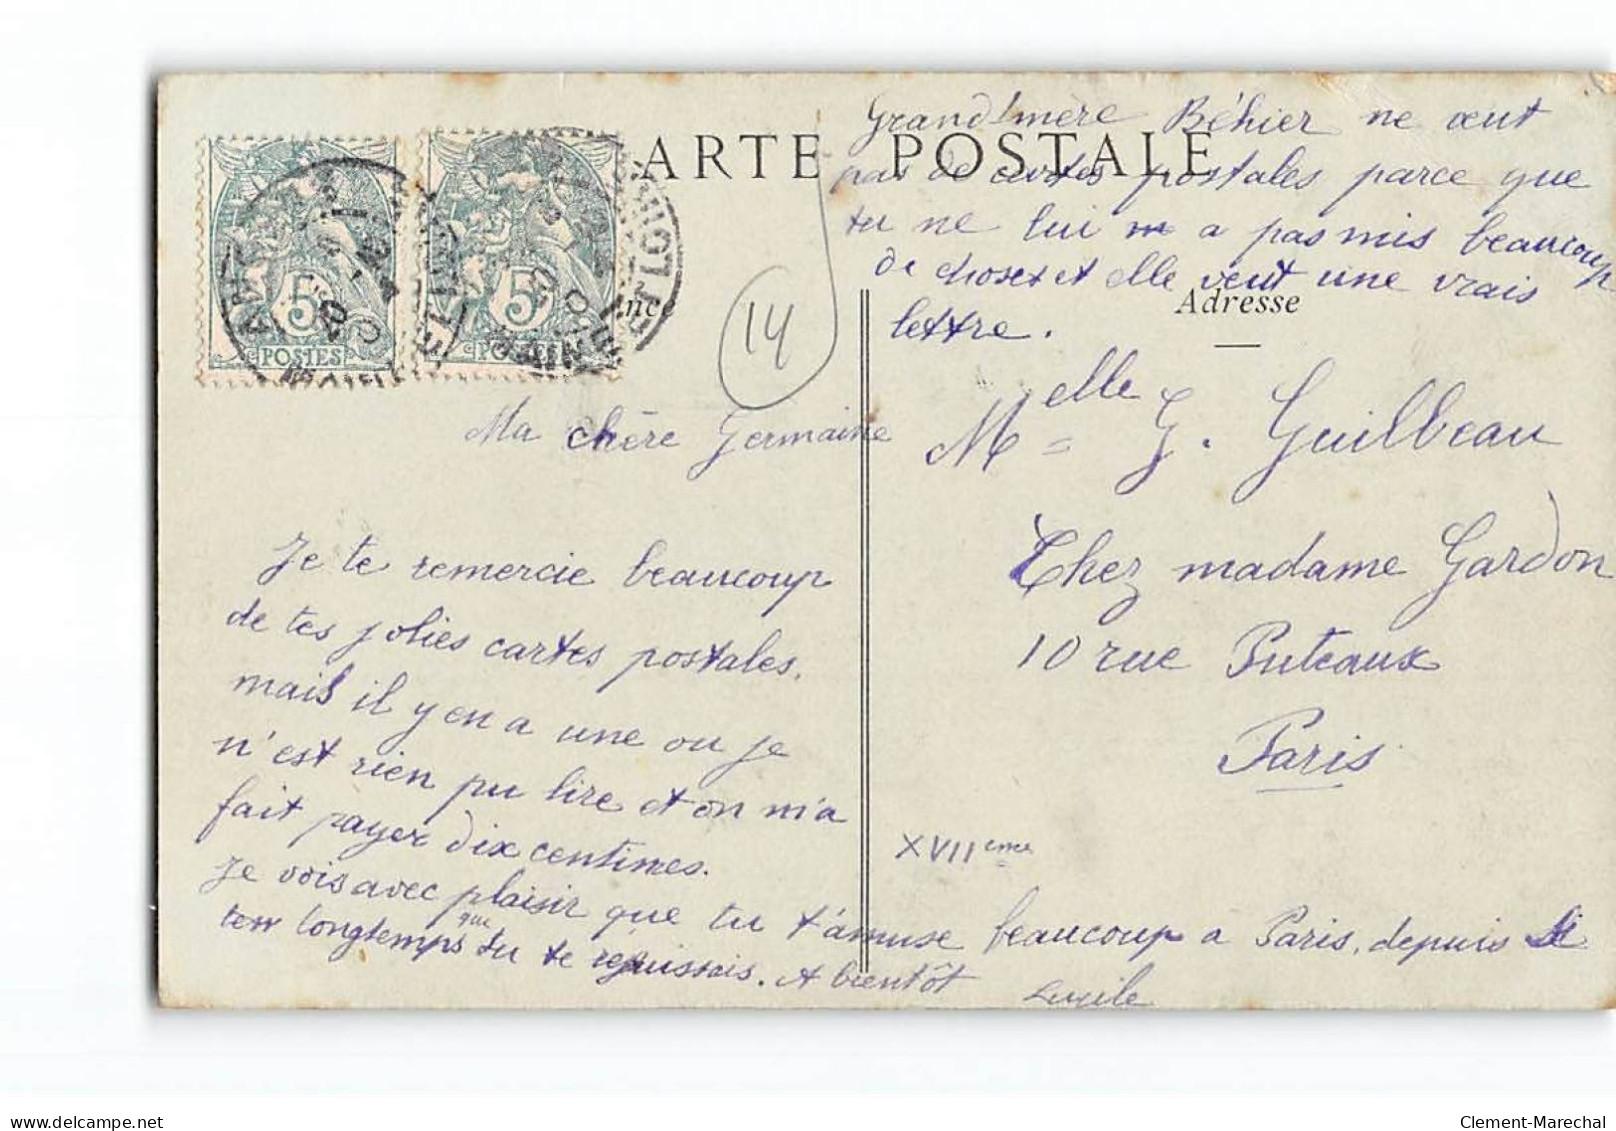 ARTE POSTALE
Grand'mere Béhier ne veut
pas de cartes postales parce que
tu ne lui a pas mis beaucoup
de choses et elle veut une vrais
lettre.
nce
Adresse
5
POSTES
5
14
Ma chère Germaine
Je te remercie beaucoup
de tes jolies cartes postales.
mais il y en a une ou je
n'est rien pu lire et on m'a
fait payer dix centimes.
Je vois avec plaisir que tu t'amuse beaucoup a Paris, depuis si
longtemps que tu te rejuissais. A bientôt
Lucile
Melle G. Guilbeau
Chez madame Gardon
10 rue Puteaux
Paris
XVIIeme
delcampe.net
Clement-Marechal